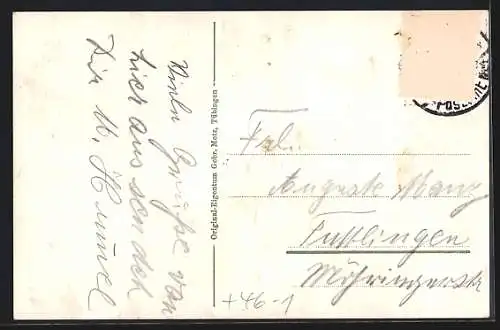 Viele Grüße von
hier aus sendet
Dir M. Hummel
Original-Eigentum Gebr. Metz, Tübingen
Frl.
Auguste Manz
Tuttlingen
Möhringerstr
+46-1